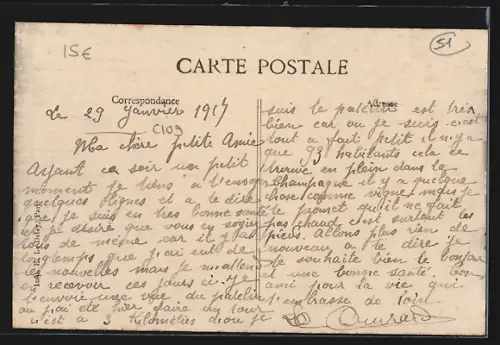 15€
51
CARTE POSTALE
Correspondance
Adresse
Le 29 Janvier 1917
C109
Ma chère petite Amie
Ayant ce soir un petit
moment je tiens a t'envoyer
quelques lignes et a te dire
que je suis en très bonne santé
je désire que vous en soyez
tous de même car il y a
longtemps que j'ai eut de
tes nouvelles mais je m'attend
en recevoir ces jours ci je
t'envoie une vue du patelin
ou j'ai été hier faire un tour
c'est a 3 kilomètres d'ou je
suis le patelin est très
bien car ou je suis c'est
tout a fait petit il n'y a
que 93 habitants cela se
trouve en plein dans la
Champagne il y a quelque
chose comme vigne mais je
te promet qu'il ne fait
pas chaud c'est surtout les
pieds allons plus rien de
nouveau a te dire je
te souhaite bien le bonjour
et une bonne santé ton
ami pour la vie qui
t'embrasse de loin